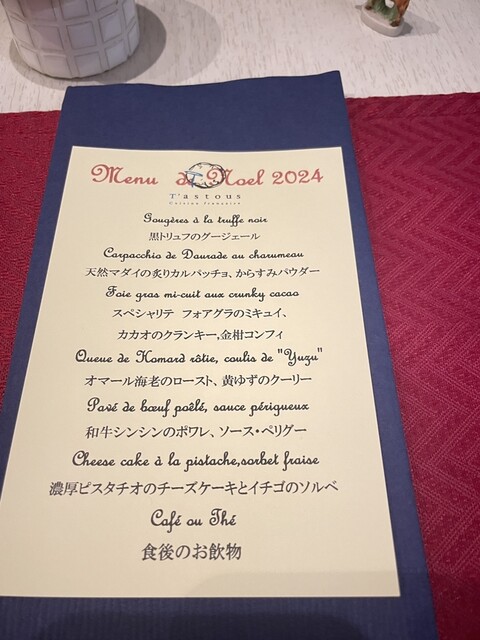 Menu de Noel 2024
T'astous
Cuisine française
Gougères à la truffe noir
黒トリュフのグージェール
Carpacchio de Daurade au charumeau
天然マダイの炙りカルパッチョ、からすみパウダー
Foie gras mi-cuit aux crunky cacao
スペシャリテ フォアグラのミキュイ、
カカオのクランキー,金柑コンフィ
Queue de Homard rôtie, coulis de "Yuzu"
オマール海老のロースト、黄ゆずのクーリー
Pavé de bœuf poêlé, sauce périgueux
和牛シンシンのポワレ、ソース・ペリグー
Cheese cake à la pistache,sorbet fraise
濃厚ピスタチオのチーズケーキとイチゴのソルベ
Café ou Thé
食後のお飲物